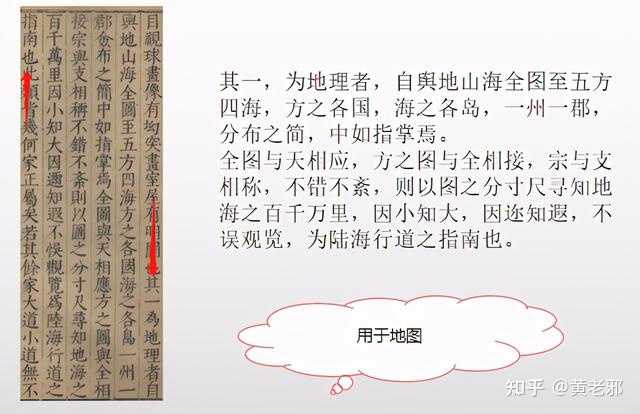 目視球畫像有坳突畫室屋有明闇也其一為地理者自
輿地山海全圖至五方四海方之各國海之各島一州一
郡僉布之簡中如指掌焉全圖與天相應方之圖與全相
接宗與支相稱不錯不紊則以圖之分寸尺尋知地海之
百千萬里因小知大因邇知遐不悞觀覽為陸海行道之
指南也此類皆幾何家正屬矣若其餘家大道小道無不
其一，为地理者，自舆地山海全图至五方
四海，方之各国，海之各岛，一州一郡，
分布之简，中如指掌焉。
全图与天相应，方之图与全相接，宗与支
相称，不错不紊，则以图之分寸尺寻知地
海之百千万里，因小知大，因迩知遐，不
误观览，为陆海行道之指南也。
用于地图
知乎 @黄老邪